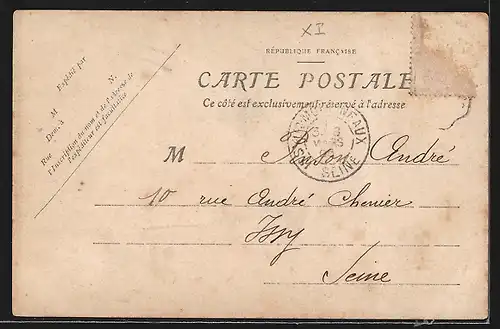 XI
RÉPUBLIQUE FRANÇAISE
CARTE POSTALE
Ce côté est exclusivement réservé à l'adresse
Expédié par
M N.
Demt à
Rue
l'Inscription du nom et de l'adresse de
l'expéditeur est facultative
ISSY-LES-MOULINEAUX
SEINE
M André
10 rue André Chenier
Issy
Seine